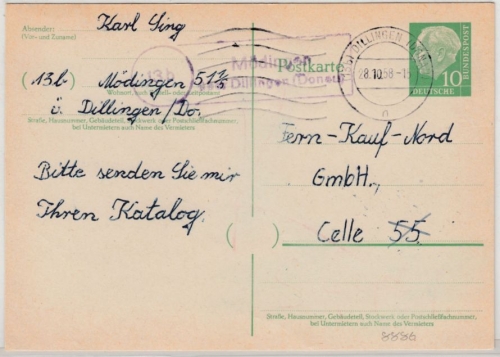 Absender:
(Vor- und Zuname)
Karl Sing
(13b) Mödingen 51 1/3
ü. Dillingen/Do.
Straße, Hausnummer, Gebäudeteil, Stockwerk oder Postschließfachnummer,
bei Untermietern auch Name des Vermieters
Bitte senden Sie mir
Ihren Katalog.
13b
Mödingen
Dillingen (Donau)
Postkarte
DILLINGEN (DONAU)
28.10.58-15
n
10
DEUTSCHE
BUNDESPOST
Fern-Kauf-Nord
GmbH.,
Celle 55
Straße, Hausnummer, Gebäudeteil, Stockwerk oder Postschließfachnummer,
bei Untermietern auch Name des Vermieters